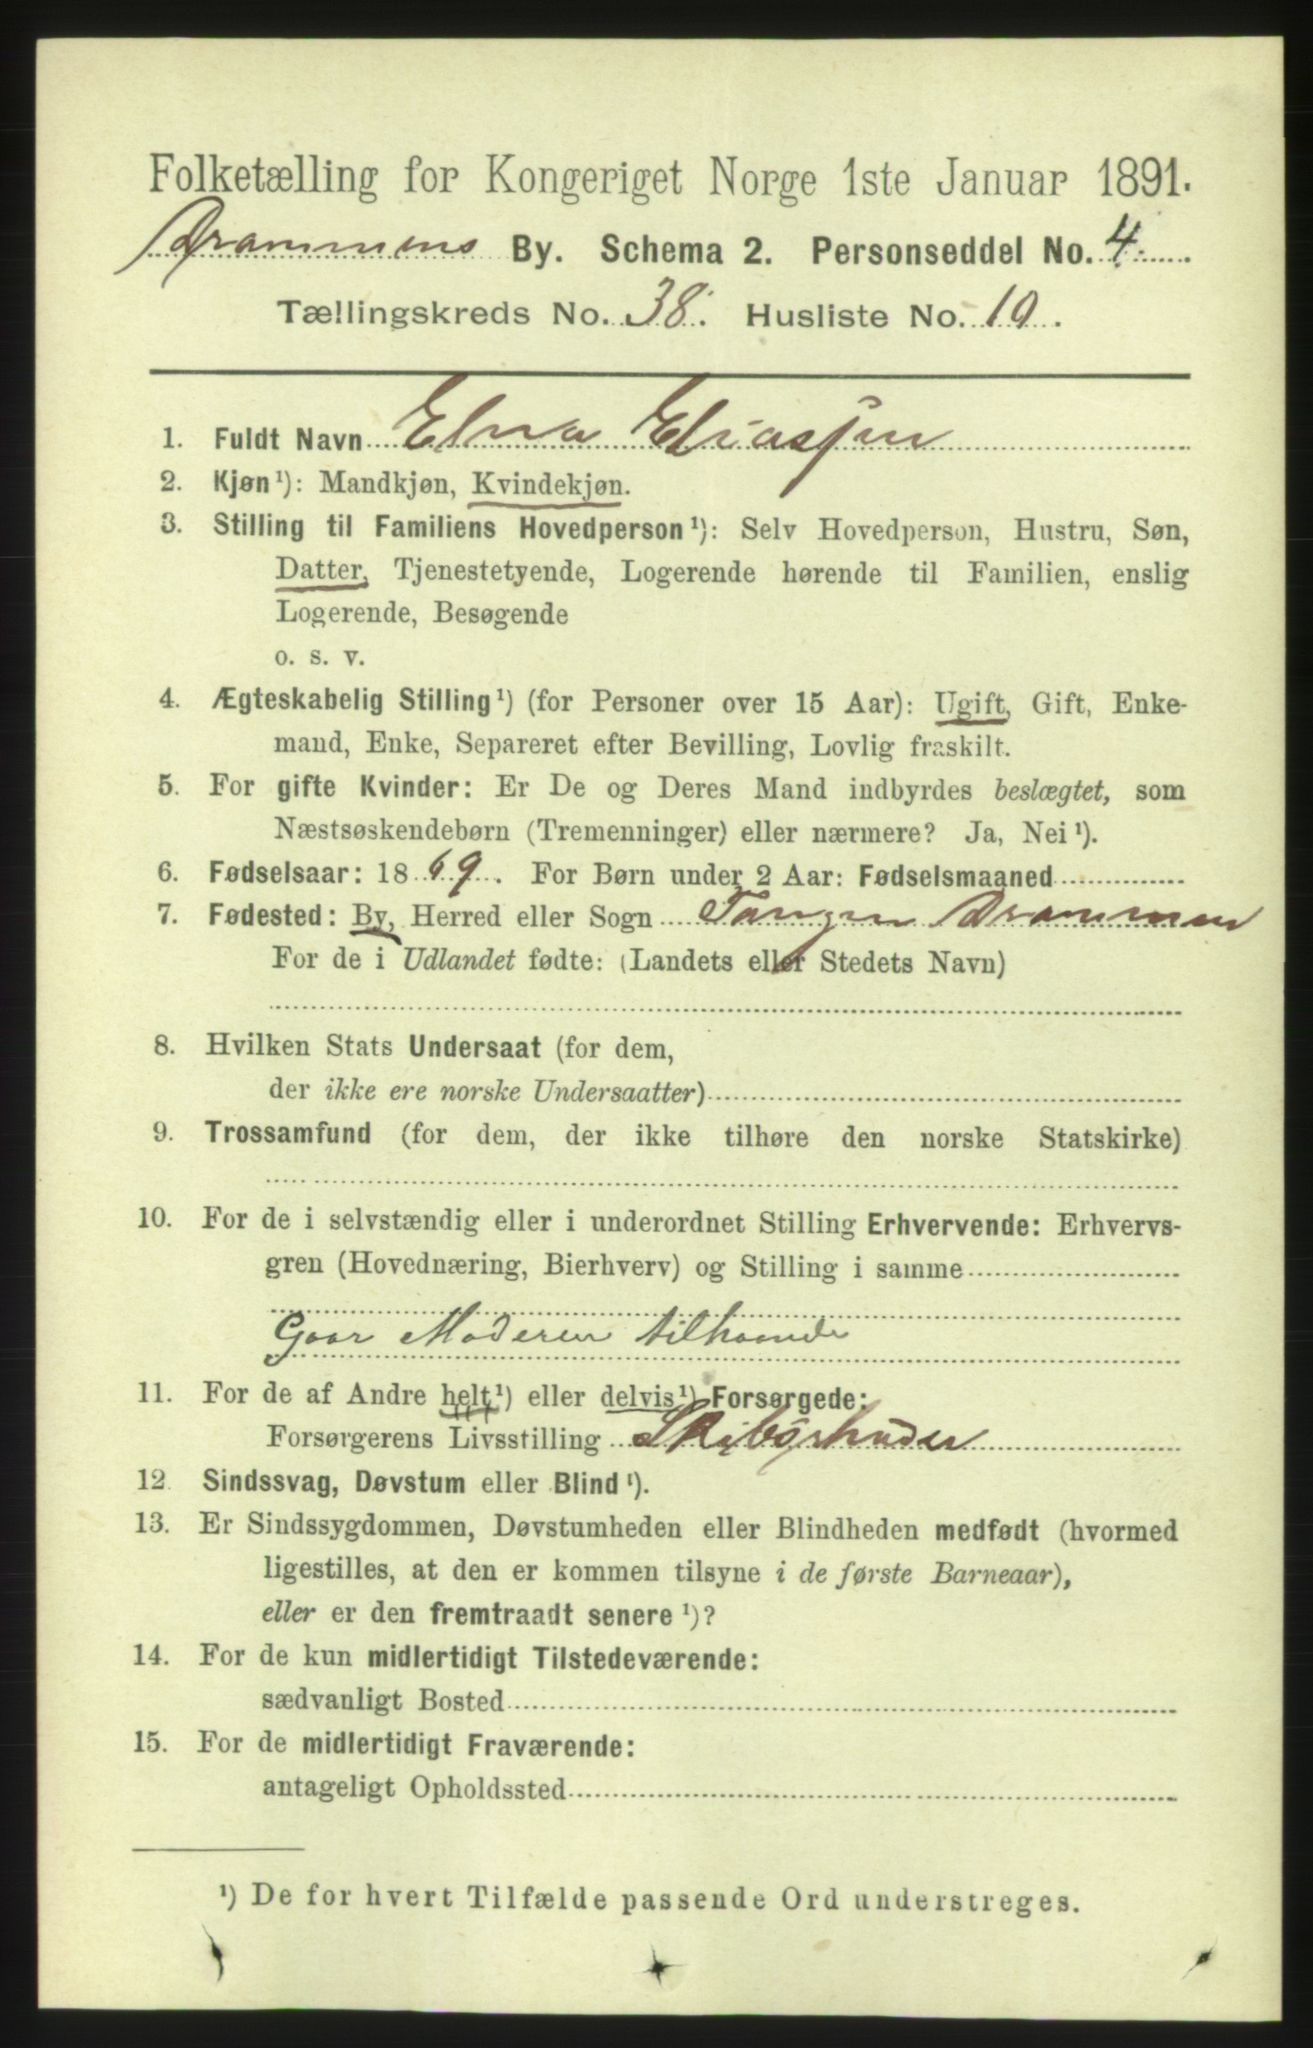 Folketælling for Kongeriget Norge 1ste Januar 1891.
Drammens By. Schema 2. Personseddel No. 4.
Tællingskreds No. 38. Husliste No. 10.
1. Fuldt Navn Elna Eliassen
2. Kjøn¹): Mandkjøn, Kvindekjøn.
3. Stilling til Familiens Hovedperson¹): Selv Hovedperson, Hustru, Søn,
Datter, Tjenestetyende, Logerende hørende til Familien, enslig
Logerende, Besøgende
o. s. v.
4. Ægteskabelig Stilling¹) (for Personer over 15 Aar): Ugift, Gift, Enke-
mand, Enke, Separeret efter Bevilling, Lovlig fraskilt.
5. For gifte Kvinder: Er De og Deres Mand indbyrdes beslægtet, som
Næstsøskendebørn (Tremenninger) eller nærmere? Ja, Nei¹).
6. Fødselsaar: 1869. For Børn under 2 Aar: Fødselsmaaned
7. Fødested: By, Herred eller Sogn Tangen Drammen
For de i Udlandet fødte: (Landets eller Stedets Navn)
8. Hvilken Stats Undersaat (for dem,
der ikke ere norske Undersaatter)
9. Trossamfund (for dem, der ikke tilhøre den norske Statskirke)
10. For de i selvstændig eller i underordnet Stilling Erhvervende: Erhvervs-
gren (Hovednæring, Bierhverv) og Stilling i samme
Gaar Moderen tilhaande
11. For de af Andre helt¹) eller delvis¹) Forsørgede:
Forsørgerens Livsstilling
12. Sindssvag, Døvstum eller Blind¹).
13. Er Sindssygdommen, Døvstumheden eller Blindheden medfødt (hvormed
ligestilles, at den er kommen tilsyne i de første Barneaar),
eller er den fremtraadt senere¹)?
14. For de kun midlertidigt Tilstedeværende:
sædvanligt Bosted
15. For de midlertidigt Fraværende:
antageligt Opholdssted
¹) De for hvert Tilfælde passende Ord understreges.